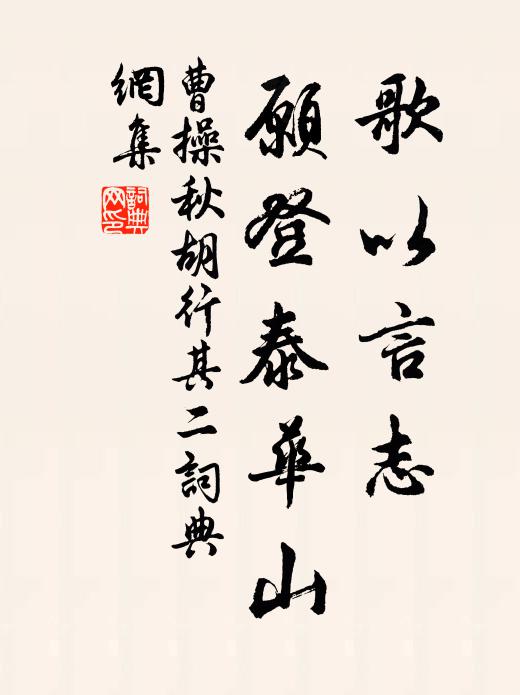 歌以言志
願登泰華山
曹操秋胡行其二詞典
網集
詞典
网印